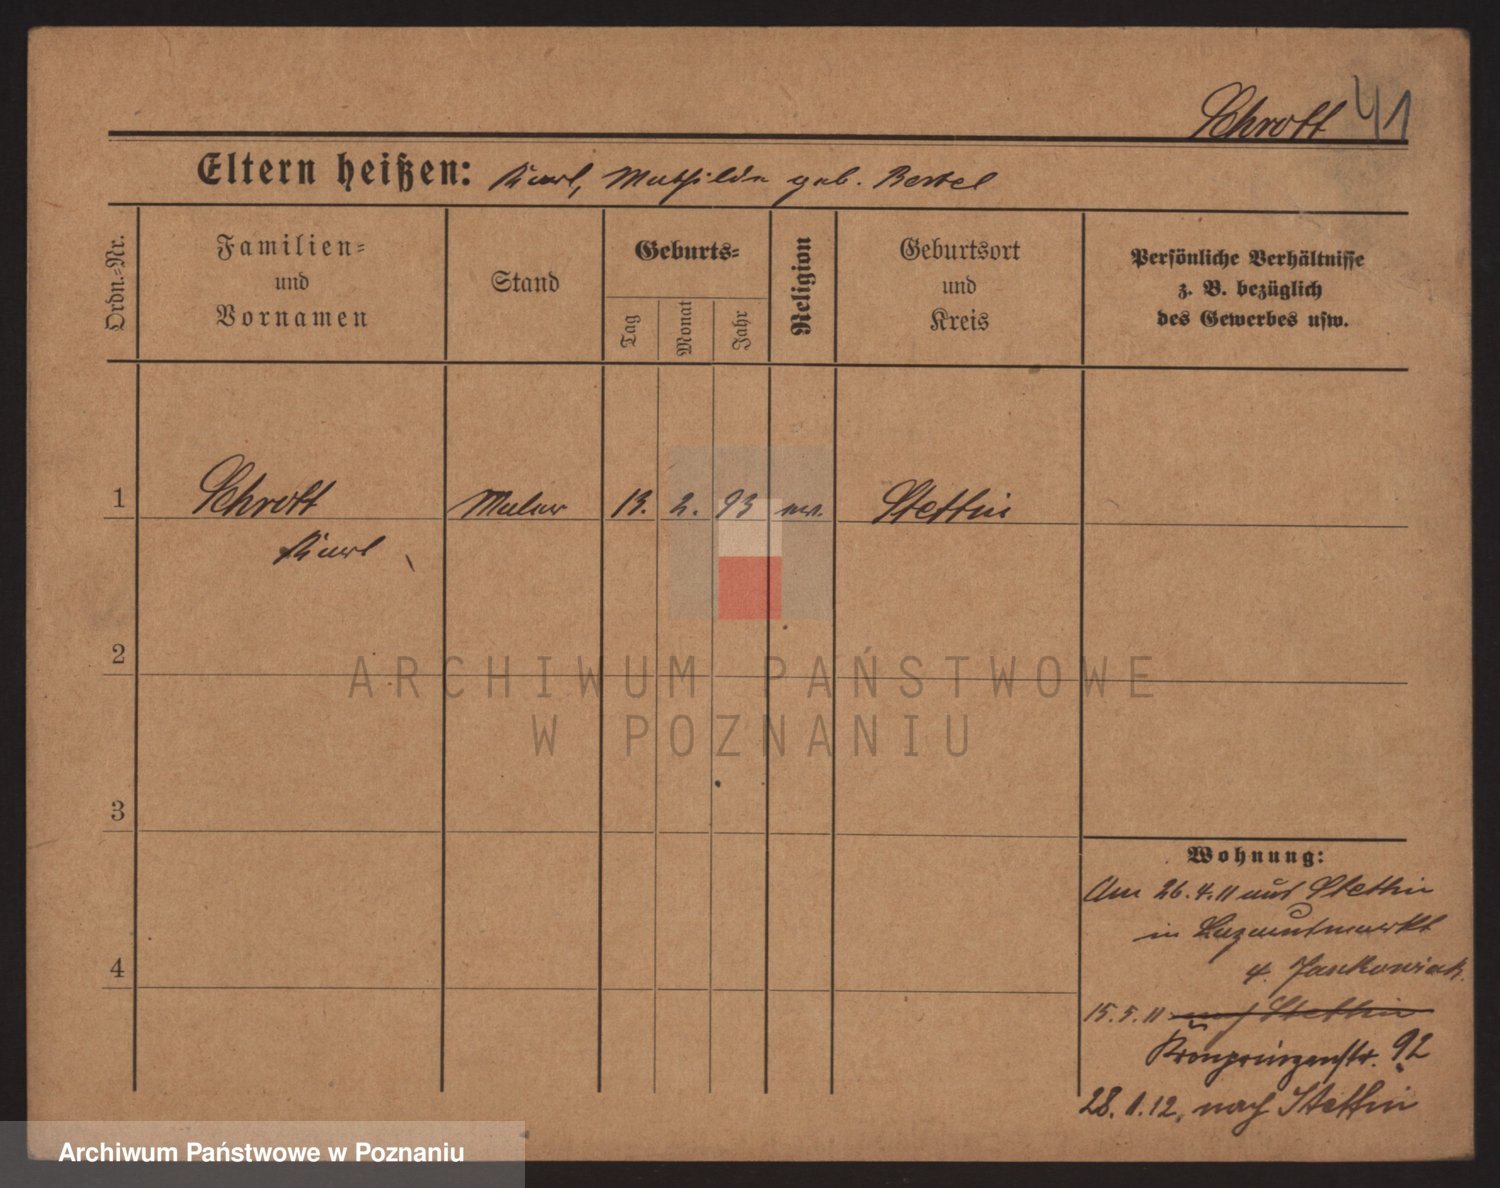 Schrott 41
Eltern heißen: Karl, Mathilde geb. Bertel
Ordn.-Nr.
Familien-
und
Vornamen
Stand
Geburts-
Tag
Monat
Jahr
Religion
Geburtsort
und
Kreis
Persönliche Verhältnisse
z. B. bezüglich
des Gewerbes usw.
1 Schrott Maler 13. 2. 93 ev. Stettin
Karl
2
3
4
Wohnung:
Am 26.4.11 aus Stettin
in
4. Jankowiak.
15.5.11 nach Stettin
Kronprinzenstr. 92
28.1.12. nach Stettin
ARCHIWUM PAŃSTWOWE
W POZNANIU
Archiwum Państwowe w Poznaniu